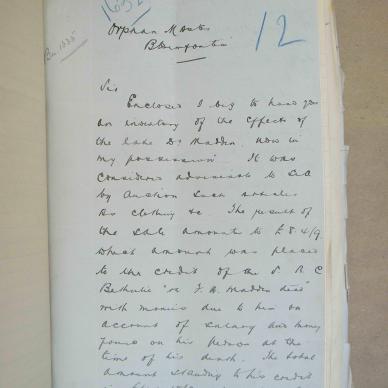 1652
12
Orphan Master
Bloemfontein
Sir
Enclosed I beg to hand you
an inventory of the effects of
the late Dr Madden now in
my possession. It was
considered advisable to sell
by Auction such articles
as clothing &c. The result of
the sale amounts to £8/4/9
which amount was placed
to the credit of the S. R C
Bethulie "re F. R. Madden decd"
with monies due to him on
account of salary and money
found on his person at the
time of his death. The total
amount standing to his credit